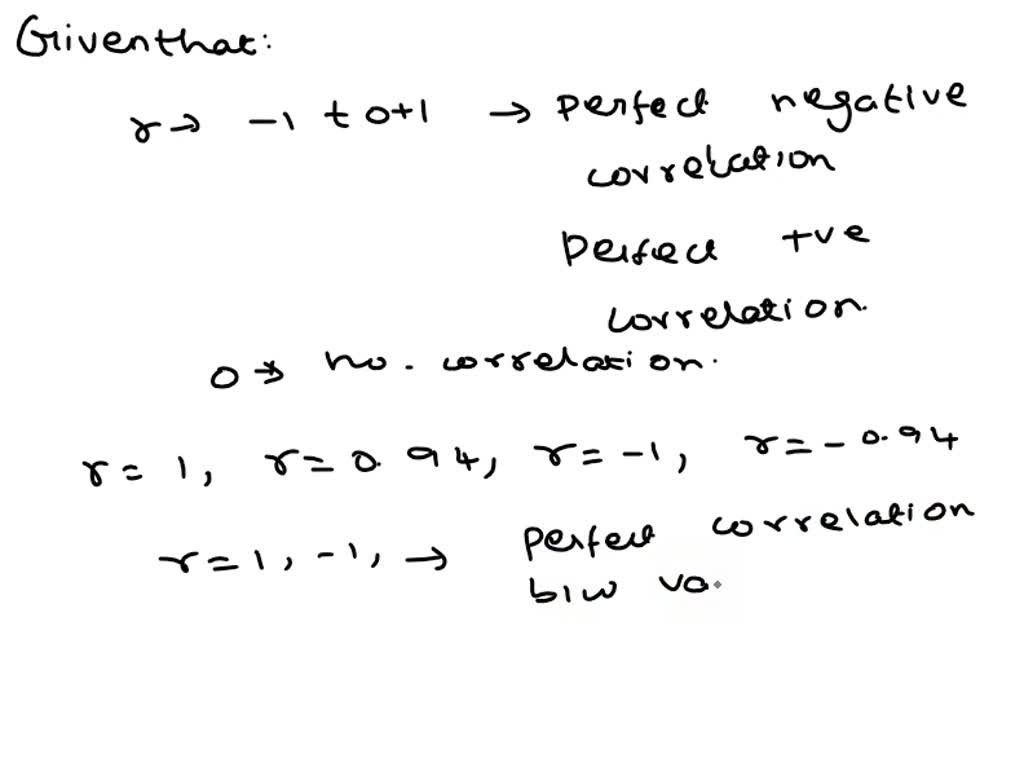 Given that:
r → -1 to +1 → perfect negative
correlation
perfect +ve
correlation.
0 → no. correlation.
r = 1, r = 0.94, r = -1, r = -0.94
r = 1, -1, → perfect correlation
b/w va